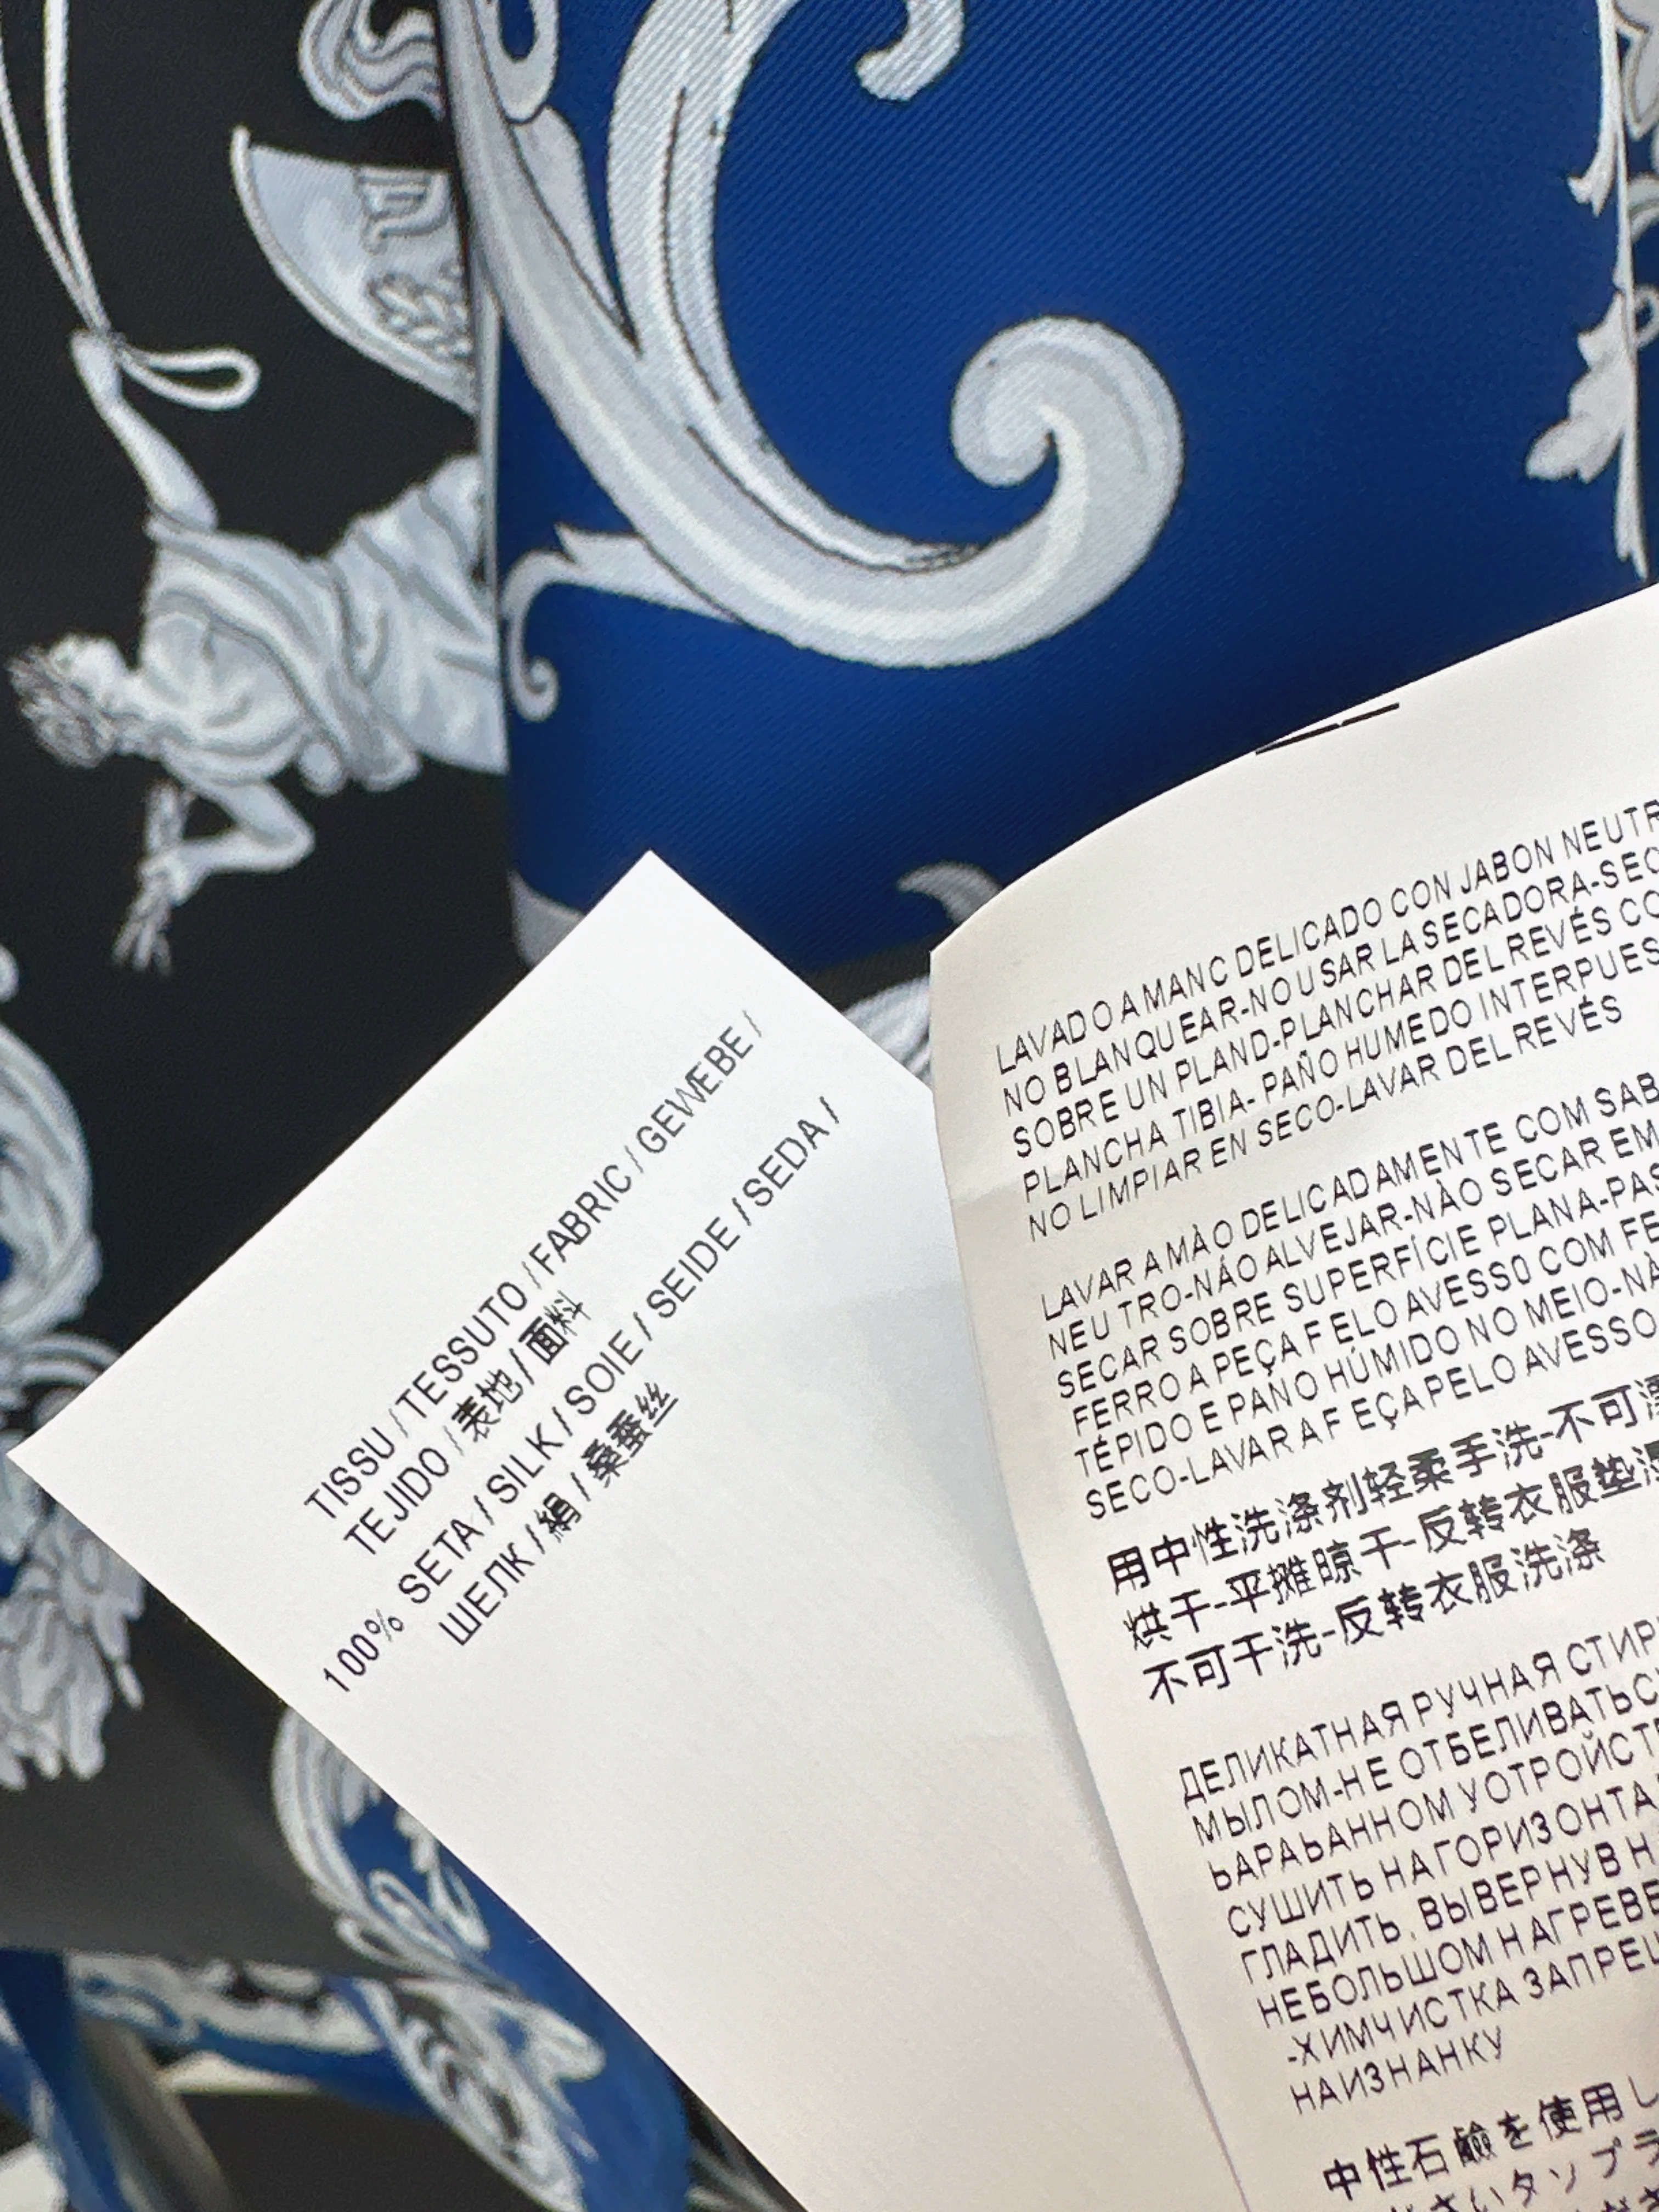 TISSU / TESSUTO / FABRIC / GEWEBE /
TEJIDO / 表地 / 面料
100% SETA / SILK / SOIE / SEIDE / SEDA /
ШЕЛК / 絹 / 桑蚕丝
LAVADO A MANC DELICADO CON JABON NEUTR
NO BLANQUEAR-NO USAR LA SECADORA-SEC
SOBRE UN PLAND-PLANCHAR DEL REVÉS CO
PLANCHA TIBIA- PAÑO HUMEDO INTERPUES
NO LIMPIAR EN SECO-LAVAR DEL REVÉS
LAVAR A MÀO DELICADAMENTE COM SAB
NEUTRO-NÁO ALVEJAR-NÀO SECAR EM
SECAR SOBRE SUPERFÍCIE PLANA-PAS
FERRO A PEÇA FELO AVESSO COM FE
TÉPIDO E PANO HÚMIDO NO MEIO-NÀ
SECO-LAVAR A FEÇA PELO AVESSO
用中性洗涤剂轻柔手洗-不可漂
烘干-平摊晾干-反转衣服垫湿
不可干洗-反转衣服洗涤
ДЕЛИКАТНАЯ РУЧНАЯ СТИР
МЫЛОМ-НЕ ОТБЕЛИВАТЬС
ЬАРАЬАННОМ УОТРОЙСТ
СУШИТЬ НА ГОРИЗОНТА
ГЛАДИТЬ. ВЫВЕРНУВ Н
НЕБОЛЬШОМ НАГРЕВЕ
-ХИМЧИСТКА ЗАПРЕЩ
НАИЗНАНКУ
中性石鹼を使用し
さいタンプラ